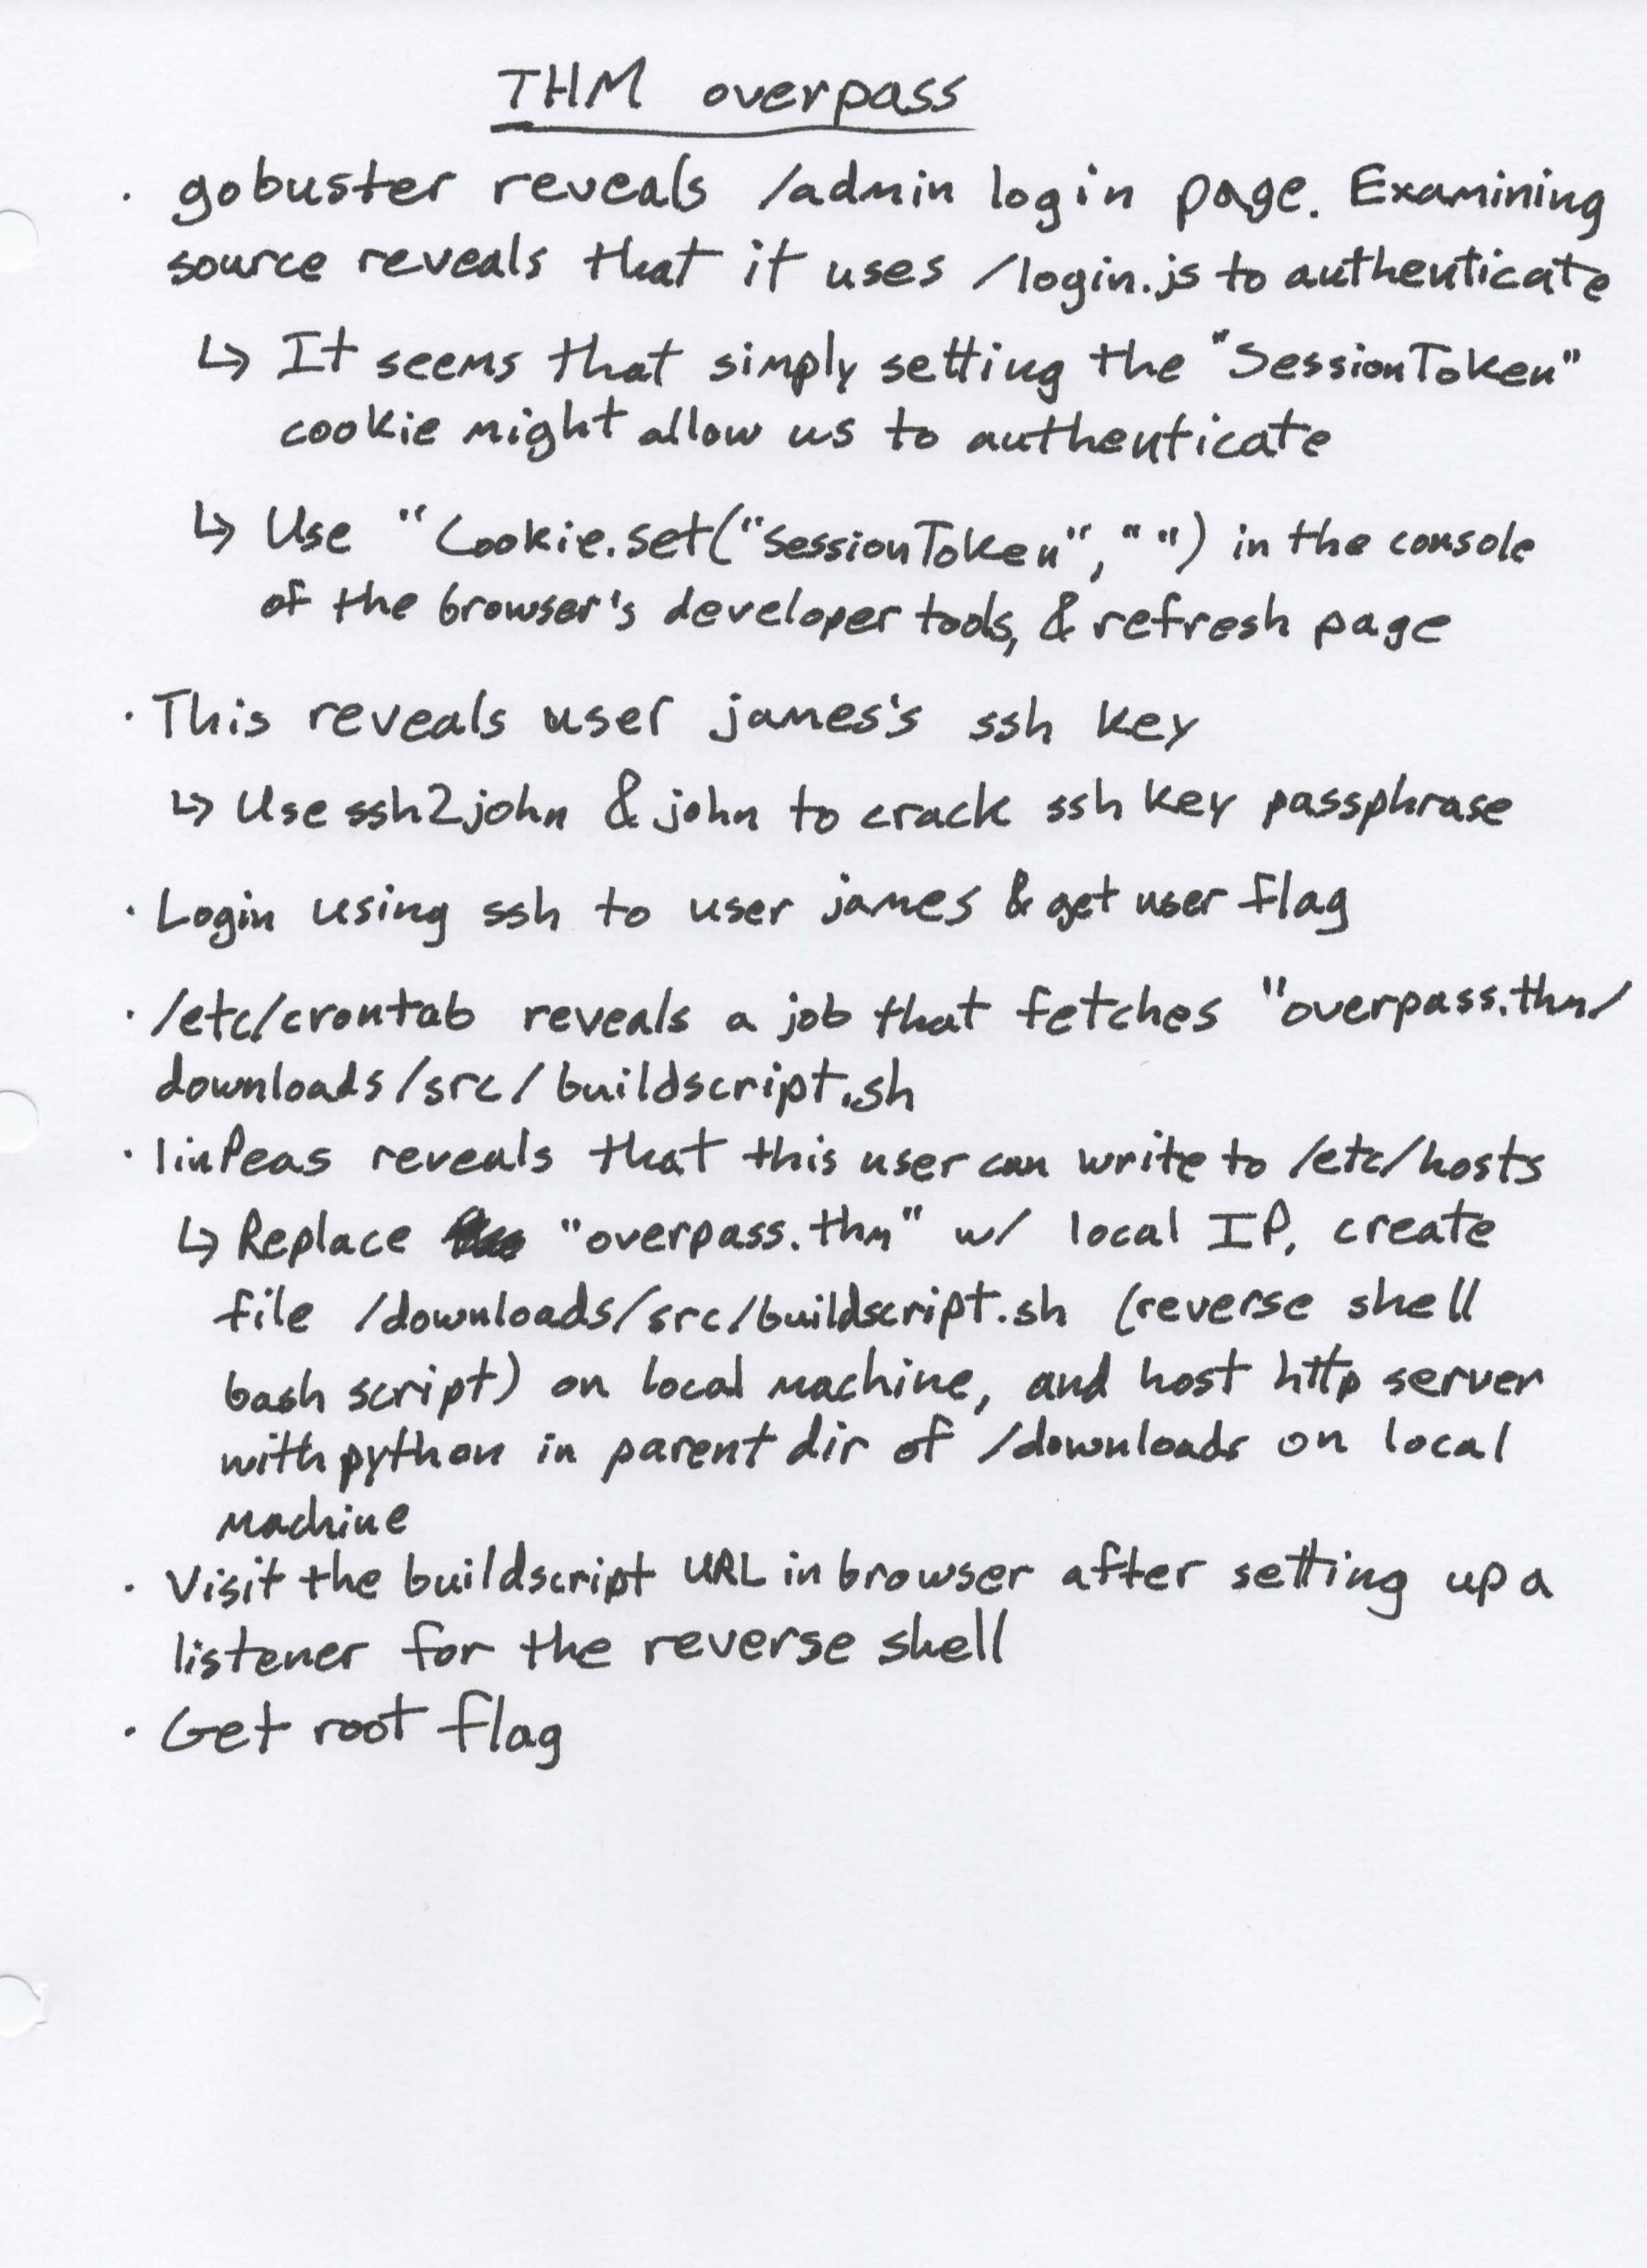 THM overpass
· gobuster reveals /admin login page. Examining
source reveals that it uses /login.js to authenticate
↳ It seems that simply setting the "SessionToken"
cookie might allow us to authenticate
↳ Use "Cookie.set("SessionToken", "") in the console
of the browser's developer tools, & refresh page
· This reveals user james's ssh key
↳ Use ssh2john & john to crack ssh key passphrase
· Login using ssh to user james & get user flag
· /etc/crontab reveals a job that fetches "overpass.thm/
downloads/src/buildscript.sh
· linPeas reveals that this user can write to /etc/hosts
↳ Replace "overpass.thm" w/ local IP, create
file /downloads/src/buildscript.sh (reverse shell
bash script) on local machine, and host http server
with python in parent dir of /downloads on local
machine
· Visit the buildscript URL in browser after setting up a
listener for the reverse shell
· Get root flag